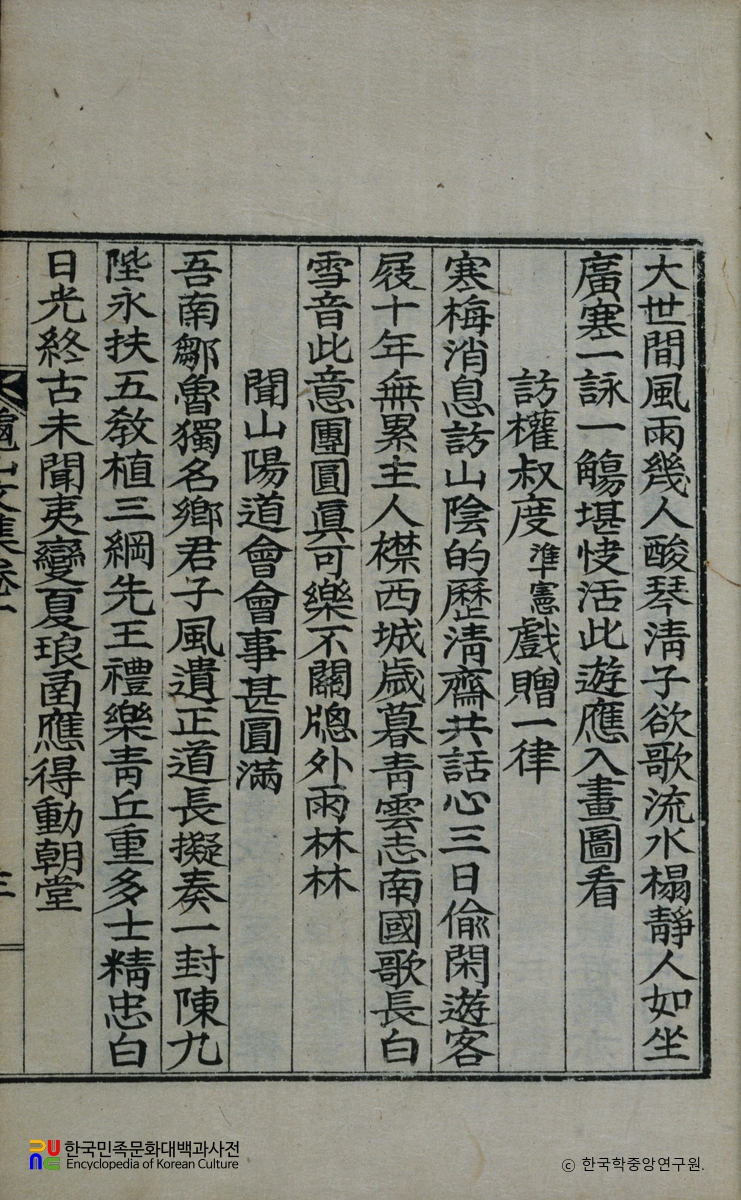 大世間風雨幾人酸琴淸子欲歌流水榻靜人如坐
廣塞一詠一觴堪快活此遊應入畫圖看
訪權叔度準憲戲贈一律
寒梅消息訪山陰的歷淸齋共話心三日偸閑遊客
屐十年無累主人襟西城歲暮靑雲志南國歌長白
雪音此意團圓眞可樂不關牕外雨林林
聞山陽道會會事甚圓滿
吾南鄒魯獨名鄕君子風遺正道長擬奏一封陳九
陛永扶五敎植三綱先王禮樂靑丘重多士精忠白
日光終古未聞夷變夏琅函應得動朝堂
龜山文集卷一
三
한국민족문화대백과사전
Encyclopedia of Korean Culture
© 한국학중앙연구원.